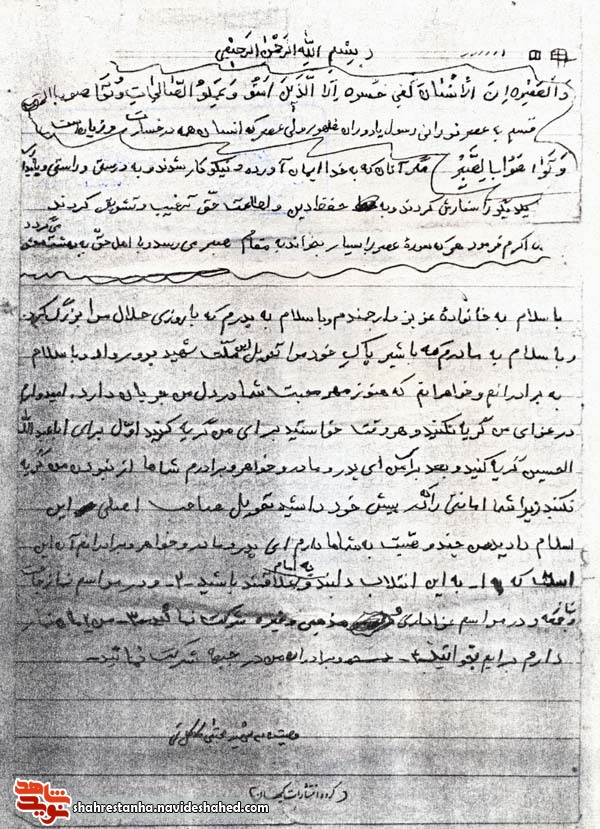 بسم الله الرحمن الرحیم
والعصر ان الانسان لفی خسر الا الذین امنو و عملو الصالحات و تواصو بالحق
قسم به عصر نورانی رسول یا دوران ظهور ولی عصر که انسان همه در خسارت و زیان است
و تواصوا بالصبر مگر آنان که به خدا ایمان آورده و نیکو کار شوند و به درستی و راستی و پایداری
یکدیگر را سفارش کردند و به حفظ دین و اطاعت حق ترغیب و تشویق کردند
اکرم فرمود هر که سورۀ عصر را بسیار بخواند به مقام صبر می رسد و با اهل حق به بهشت محشور می گردد
با سلام به خانوادۀ عزیز و ارجمندم و با سلام به پدرم که با روزی حلال مرا بزرگ کرد
و با سلام به مادرم که با شیر پاک خود مرا تحویل این مملکت شهید پرور داد و با سلام
به برادرانم و خواهرانم که هنوز مهر محبت شما در دل من جریان دارد، امیدوارم
در عزای من گریه نکنید و هر وقت خواستید برای من گریه کنید اوّل برای اباعبدالله
الحسین گریه کنید و بعد برای من ای پدر و مادر و خواهر و برادرم شاها از نبودن من گریه
نکنید زیرا شما امانتی را که پیش خود داشتید تحویل صاحب اصلی این
اسلام دادید من چند وصیّت به شماها دارم ای پدر و مادر و خواهر و برادرانم آن این
است که ۱- به این انقلاب دلبند و به امام علاقمند باشید -۲- و در مراسم نمازهای
جمعه و در مراسم عزاداری مذهبی و غیره شرکت نمائید -۳- من نماز
دارم برایم بخوانید ۴- و برادران من در جبهه شرکت نمائید-
وصیت نامه شهید
گروه انتشارات
شاهد
نوید
shahrestanha.navideshahed.com